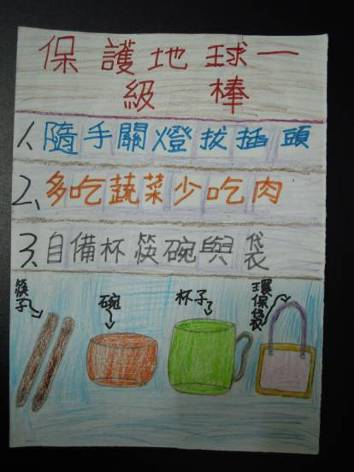 保護地球一
級棒
1、隨手關燈拔插頭
2、多吃蔬菜少吃肉
3、自備杯筷碗與袋
筷子
碗
杯子
環保袋